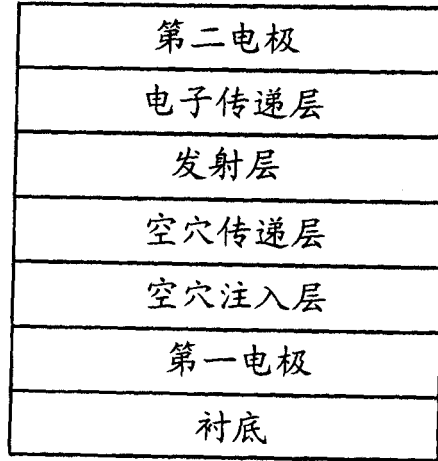 第二电极
电子传递层
发射层
空穴传递层
空穴注入层
第一电极
衬底